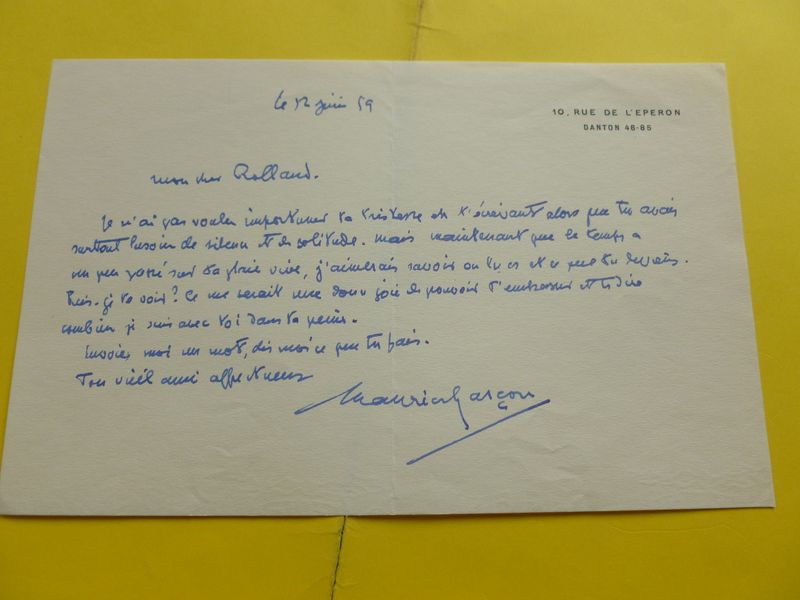 le 12 juin 59
10, RUE DE L'EPERON
DANTON 48-85
mon cher Rolland.
Je n'ai pas voulu importuner ta tristesse en t'écrivant alors que tu avais
surtout besoin de silence et de solitude. mais maintenant que le temps a
un peu passé sur ta plaie vive, j'aimerais savoir où tu es et ce que tu deviens.
Puis-je te voir? Ce me serait une douce joie de pouvoir t'embrasser et te dire
combien je suis avec toi dans ta peine.
Envoies moi un mot, dis moi ce que tu fais.
Ton vieil ami affectueux
Maurice Garçon